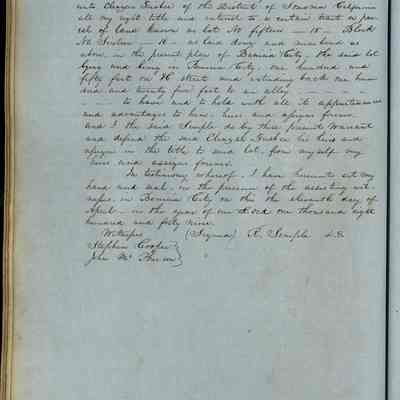 unto Chazen Fusbee of the District of Sonoma California
all my right title and interest to a certain tract or par
cel of land known as Lot No fifteen — 15 — Block
No Sixteen — 16 — as laid down and numbered as
above, in the present plan of Benicia City, the said lot
lying and being in Benicia City one hundred and
fifty feet on H street and extending back one hun
dred and twenty five feet to an alley
to have and to hold with all its appurtenances
and advantages to him, heirs and assigns forever
and I the said Semple do by these presents Warrant
and defend the said Chazen Fusbee his heirs and
assigns in the title to said lot, from myself my
heirs and assigns forever.
In testimony whereof, I have hereunto set my
hand and seal, in the presence of the assisting wit
nesses, in Benicia City on this the eleventh day of
April, in the year of our Lord one thousand eight
hundred and forty nine.
Witnesses (Signed) R. Semple L.S.
Stephen Cooper
John Mc